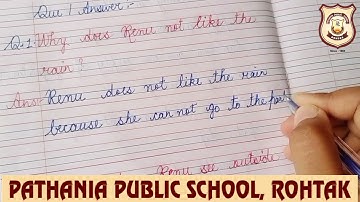 Que / Answer :-
Q.1 Why does Renu not like the
rain ?
Ans: Renu does not like the rain
because she can not go to the
Renu see outside
PATHANIA PUBLIC SCHOOL, ROHTAK